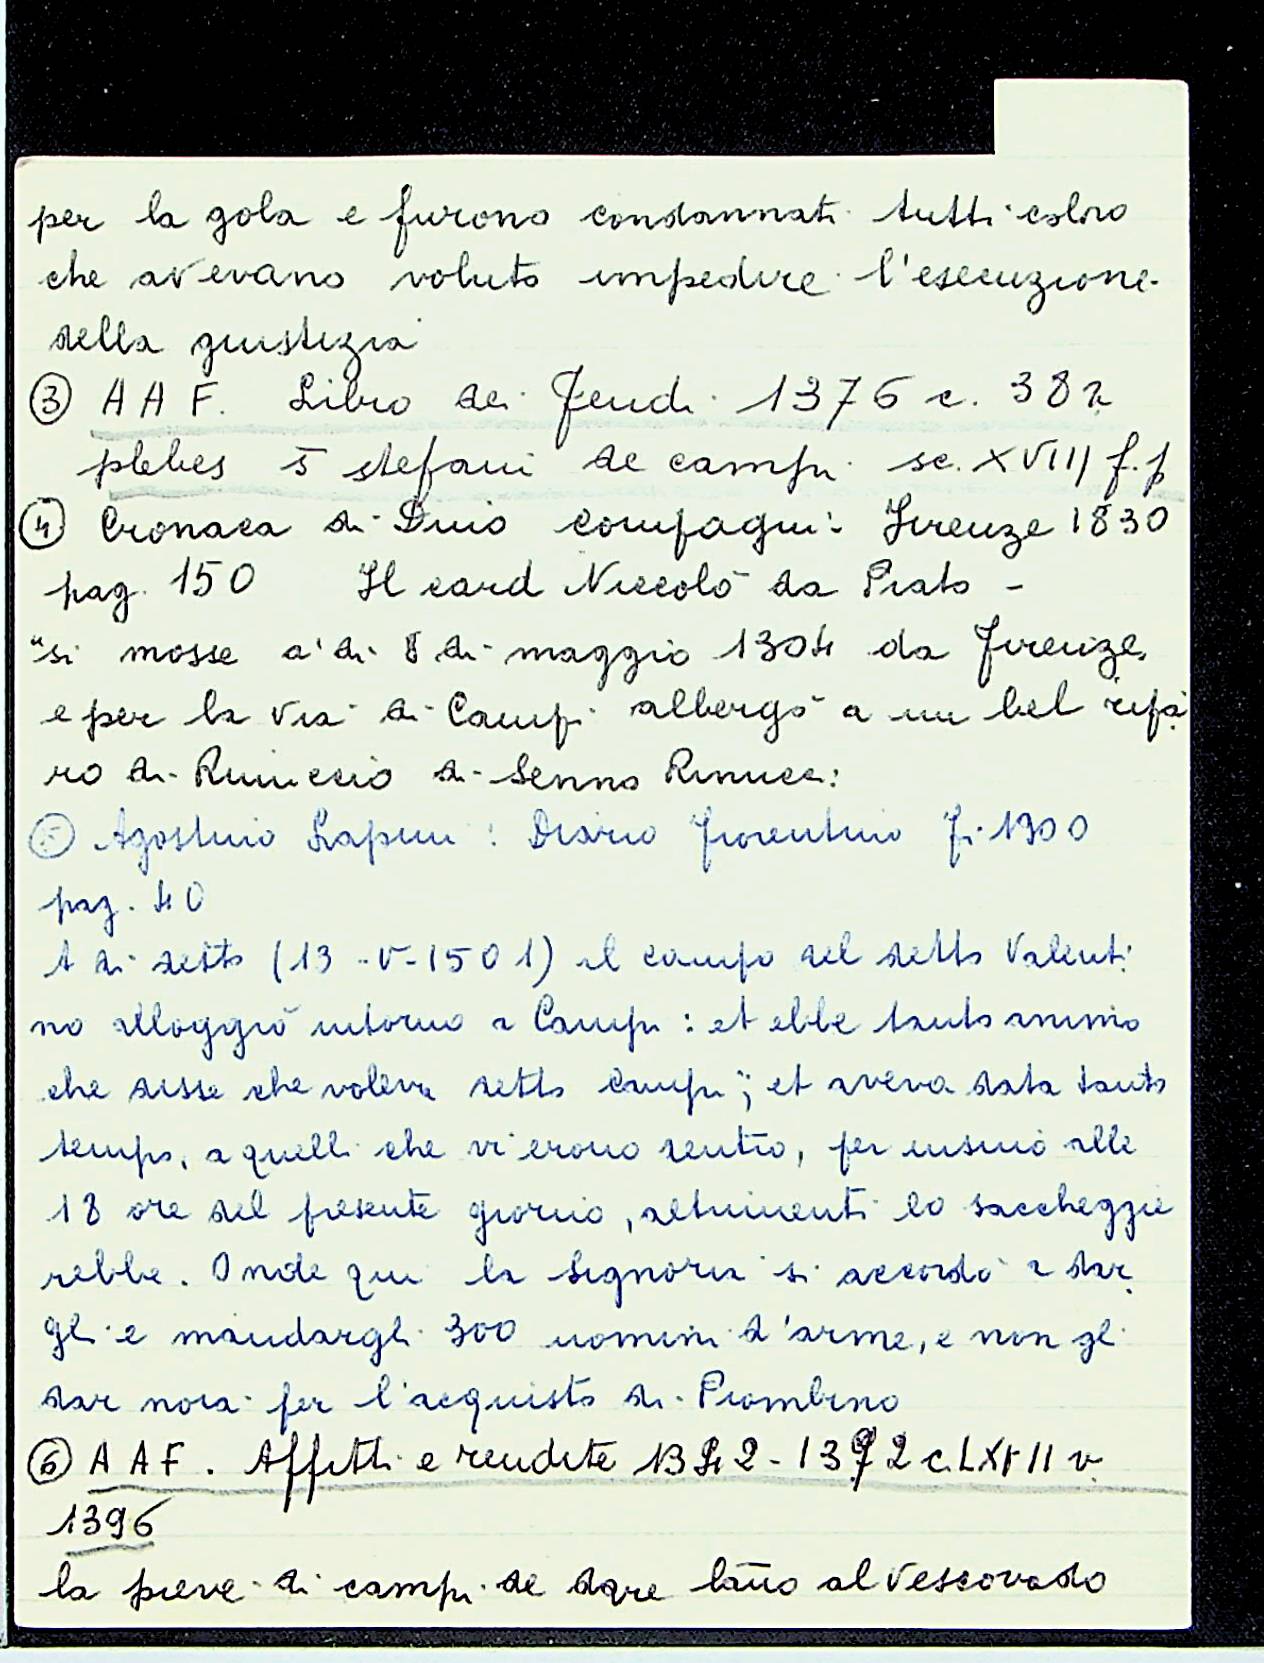 per la gola e furono condannati tutti coloro
che avevano voluto impedire l'esecuzione
della giustizia
③ AAF. Libro dei Feudi 1376 c. 38 r
plebes S̄ stefani de campi sc. XVIII f. p
④ Cronaca di Dino Compagni: Firenze 1830
pag. 150 Il card Niccolò da Prato -
"si mosse a' di 8 di maggio 1304 da Firenze,
e per la via di Campi albergò a un bel ripa
ro di Rinuccio di Senno Rinucci:
⑤ Agostino Lapini: Diario fiorentino Fi. 1900
pag. 40
A di detto (13-V-1501) il campo del detto Valenti
no alloggiò intorno a Campi: et ebbe tanto animo
che disse che voleva detto Campi; et aveva data tanto
tempo, a quelli che vi erono dentro, per insino alle
18 ore del presente giorno, altrimenti lo saccheggie
rebbe. Onde qui la Signoria si accordò a dar
gli e mandargli 300 uomini d'arme, e non gli
dar noia per l'acquisto di Piombino
⑥ AAF. Affitti e rendite 1342-1392 c. LXVII v.
1396
la pieve di campi de dare lāno al Vescovado